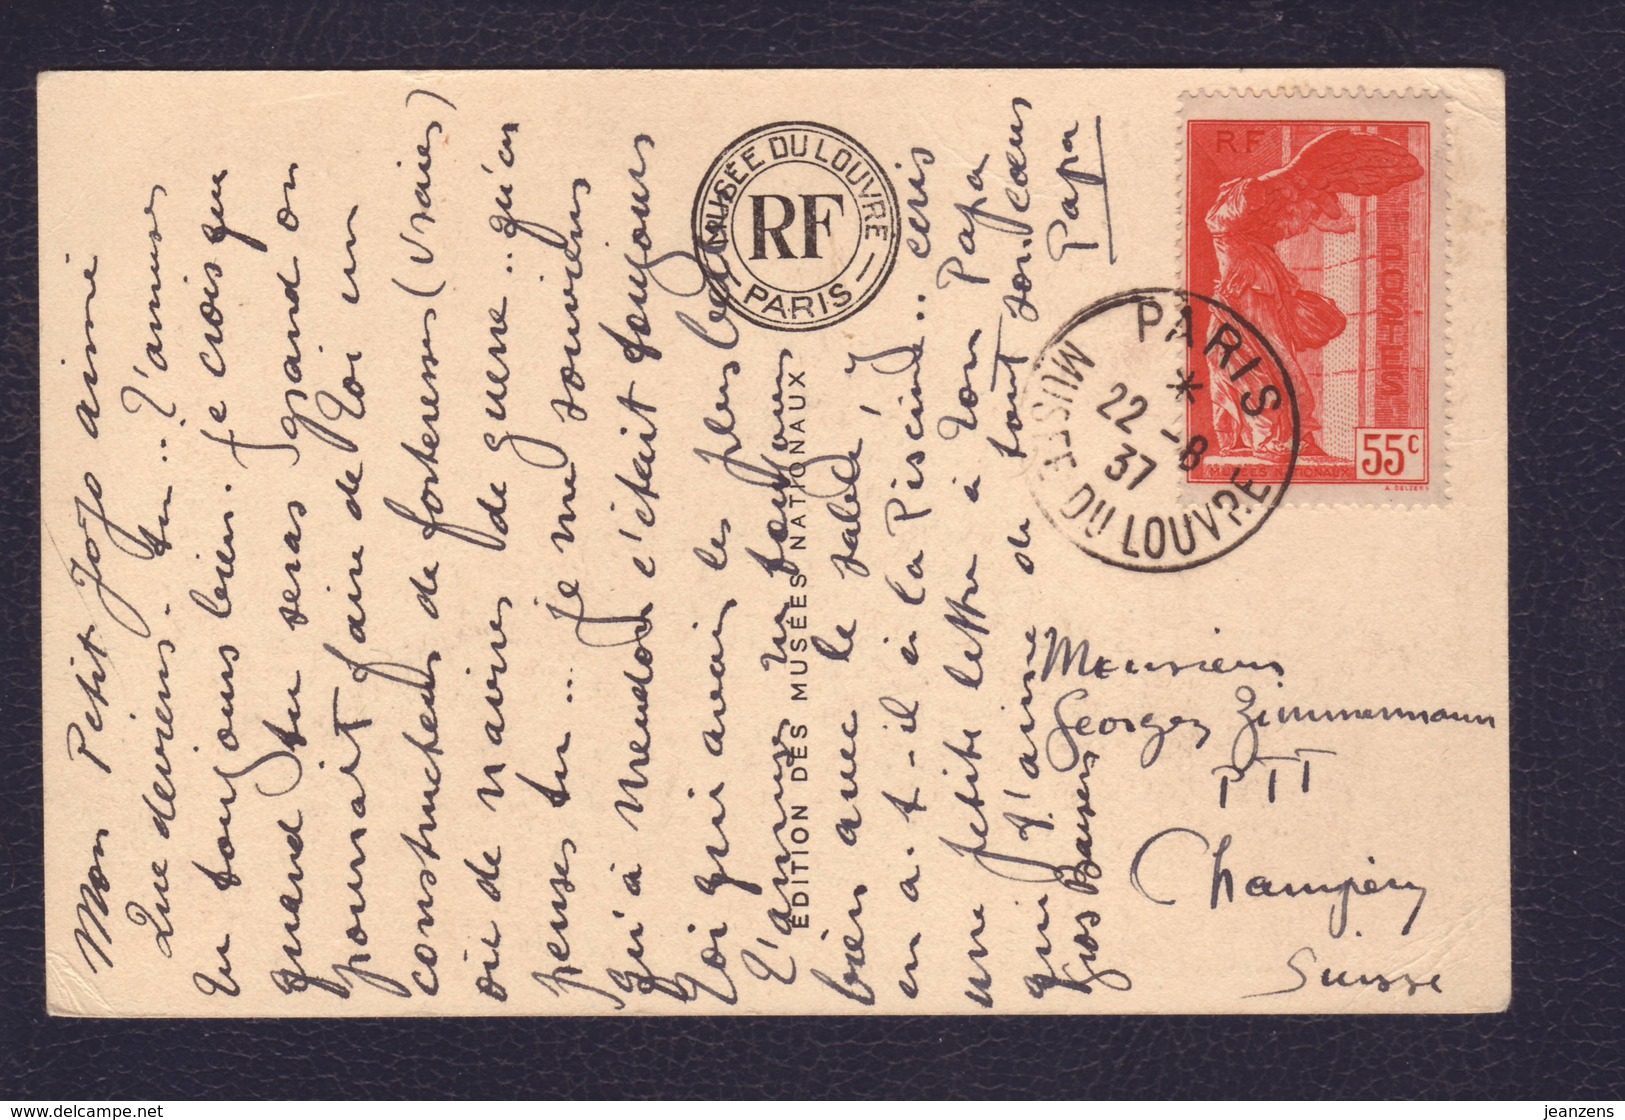 Mon Petit Jojo aimé
Que deviens-tu... T'amuses
tu toujours bien. Je crois que
quand tu seras grand on
pourrait faire de toi un
constructeur de forteresses (vraies)
ou de navires de guerre.. qu'en
penses tu... Je me souviens
qu'à Meudon c'était toujours
toi qui avais les plus beaux
T'amuses tu toujours
bien avec le sable? Y
en a-t-il à la Piscine.. écris
une petite lettre à ton Papa
qui t'aime de tout son cœur
Gros Baisers Papa
MUSÉE DU LOUVRE
RF
PARIS
ÉDITION DES MUSÉES NATIONAUX
RF
POSTES
MUSÉES NATIONAUX
55c
A. DELZERS
PARIS
*
22 -8
37
MUSEE DU LOUVRE
Monsieur
Georges Zimmermann
PTT
Champéry
Suisse
http://www.delcampe.net
jeanzens